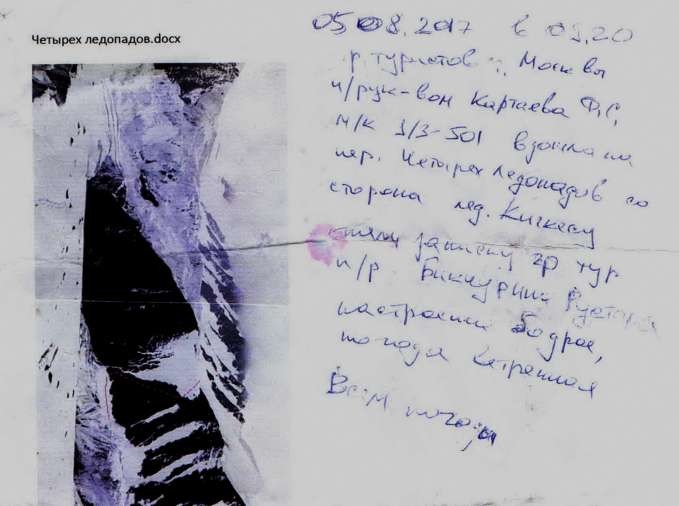 Четырех ледопадов.docx
05.08.2017 в 09.20
гр. туристов г. Москвы
п/рук-вом Картаева Ф.С.
м/к 1/3-501 взошла на
пер. Четырех ледопадов со
стороны лед. Кичкесу
сняли записку гр тур
п/р Бикчурина Рустама
настроение бодрое,
погода ветренная
Всем